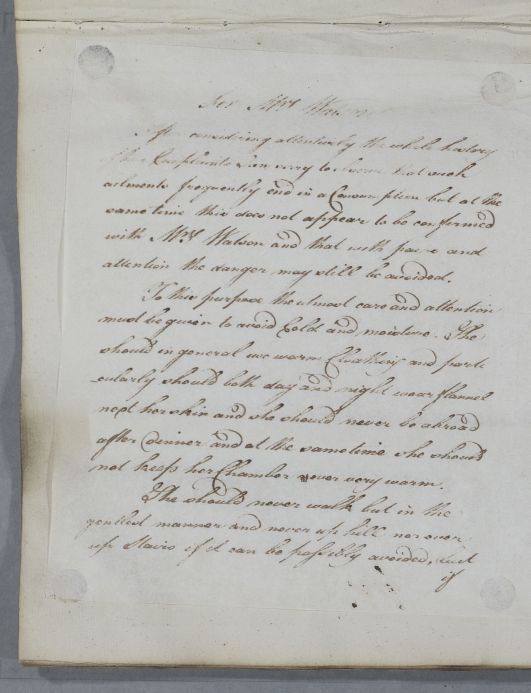 For Mrs Watson
After considering attentively the whole history
of her Complaints I am sorry to that such
ailments frequently end in a Consumption but at the
same time this does not appear to be confirmed
with Mrs Watson and that with pains and
attention the danger may still be avoided.
To this purpose the utmost care and attention
must be given to avoid Cold and moisture. She
should in general use warm Cloathing and parti
cularly should both day and night wear flannel
next her skin and she should never be abroad
after Dinner and at the same time she should
not keep her Chamber ever very warm.
She should never walk but in the
gentlest manner and never up hill nor even
up Stairs if it can be possibly avoided, but
if